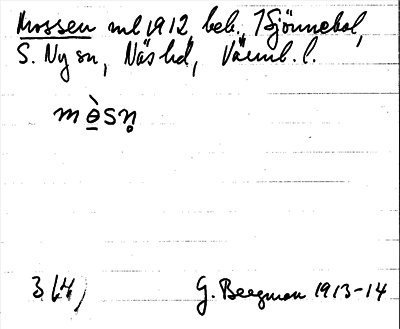 Mossen ml 1912, beb., Tjönnebol,
S. Ny sn, Näs hd, Värml. l.
mə̠̀sn̥
3 (4)
G. Bergman 1913-14